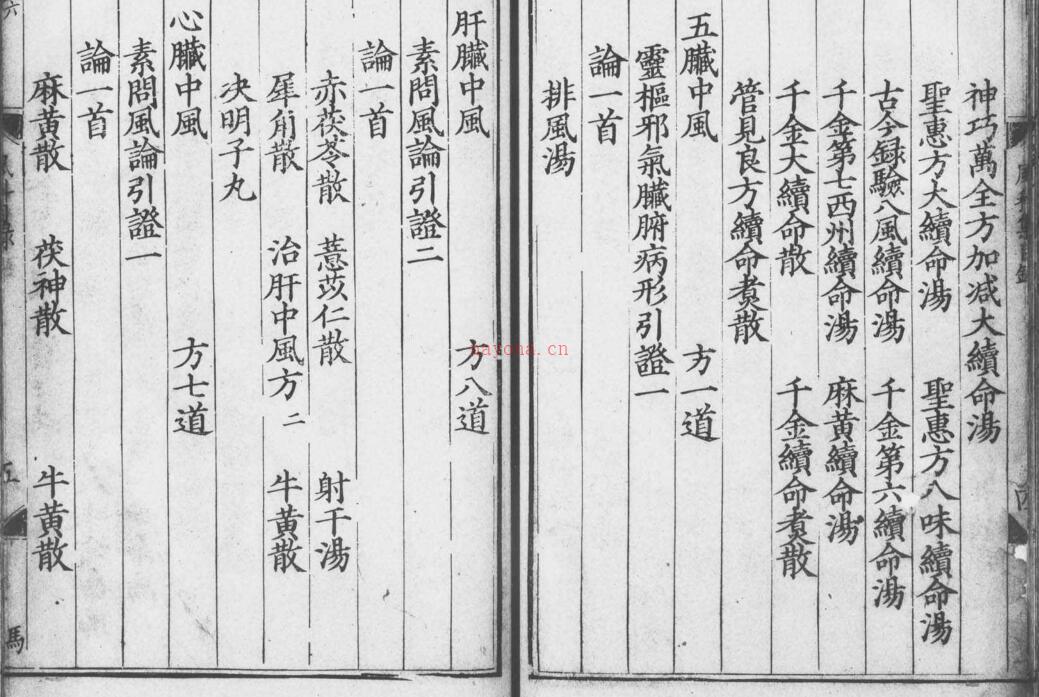 神巧萬全方加减大續命湯
聖惠方大續命湯 聖惠方八味續命湯
古今録驗八風續命湯 千金第六續命湯
千金第七西州續命湯 麻黄續命湯
千金大續命散 千金續命煑散
管見良方續命煑散
五臟中風 方一道
靈樞邪氣臟腑病形引證一
論一首
排風湯
肝臟中風 方八道
素問風論引證二
論一首
赤茯苓散 薏苡仁散 射干湯
犀角散 治肝中風方二 牛黄散
决明子丸
心臟中風 方七道
素問風論引證一
論一首
麻黄散 茯神散 牛黄散
馬
nayona.cn